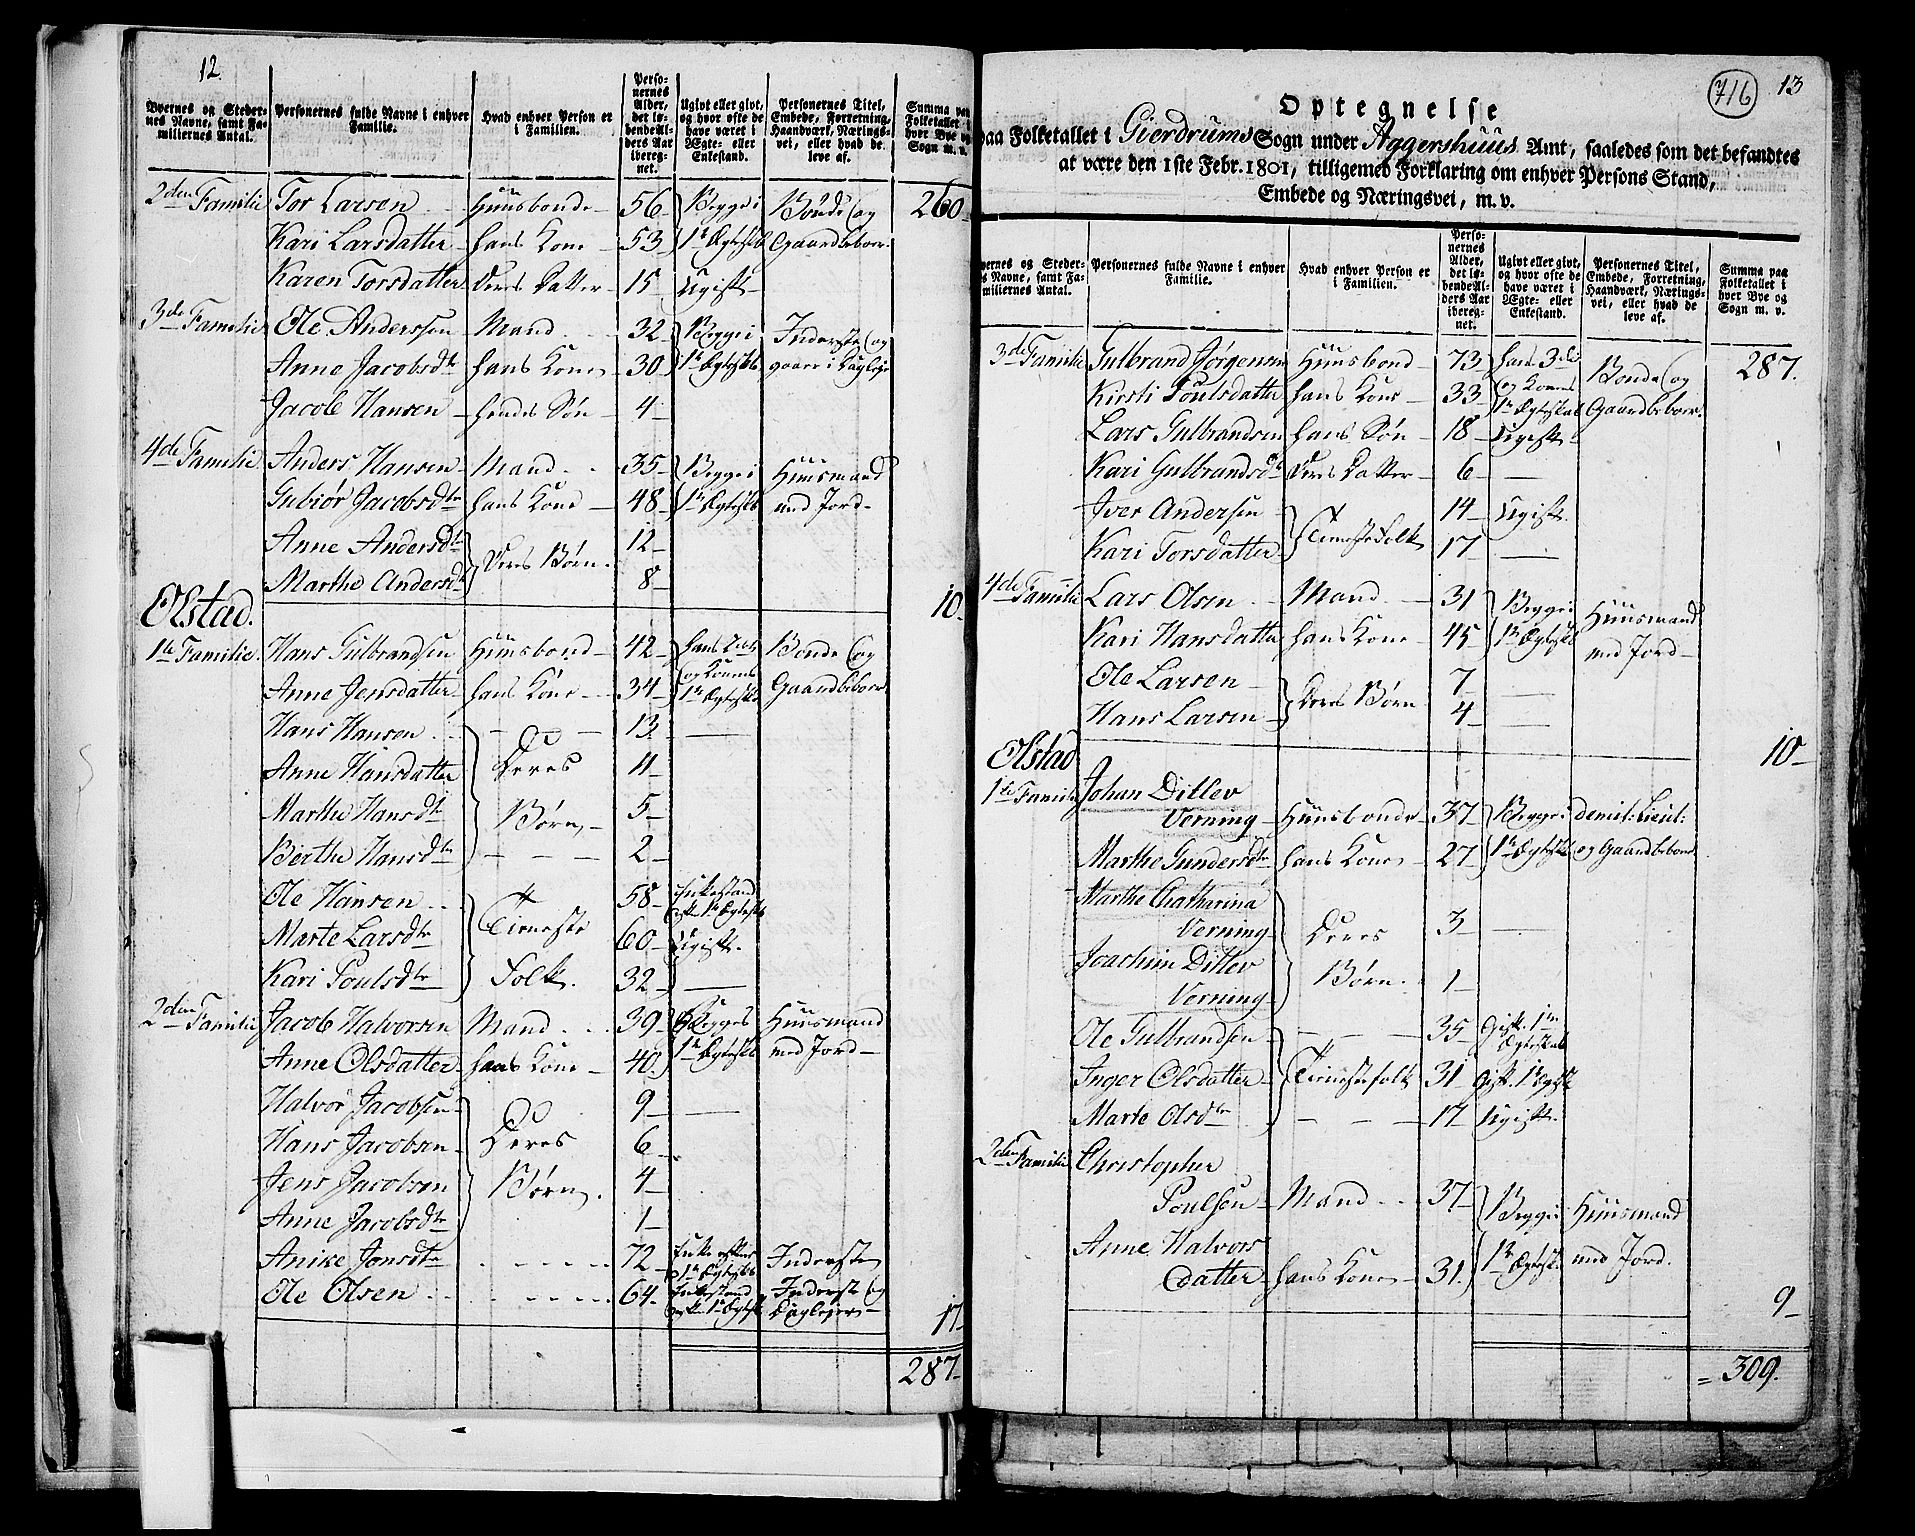 12.
Byernes og Steder-
nes Navne, samt Fa-
miliernes Antal.
Personernes fulde Navne i enhver
Familie.
Hvad enhver Person er
i Familien.
Perso-
nernes
Alder,
det lø-
bende Al-
ders Aar
ibereg-
net.
Ugivt eller givt,
og hvor ofte de
have været i
Ægte- eller
Enkestand.
Personernes Titel,
Embede, Forretning,
Haandværk, Nærings-
vei, eller hvad de
leve af.
Summa paa
Folketallet
hver Bye
Sogn m. v.
2den Familie Tor Larsen Huusbonde 56 Begge i Bonde og 260
Kari Larsdatter hans Kone 53 1te Ægtesk Gaardbeboer
Karen Torsdatter Deres Datter 15 Ugift
3de Familie Ole Anderssen Mand 32 Begge i Inderste og
Anne Jacobsdtr hans Kone 30 1te Ægtesk gaaer i Dagleje
Jacob Hansen hendes Søn 4
4de Familie Anders Hansen Mand 35 Begge i Huusmand
Gubiør Jacobsdtr hans Kone 48 1te Ægtesk med Jord
Anne Andersdtr Deres Børn 12
Marthe Andersdtr 8
Olstad. 10
1te Familie Hans Gulbrandsen Huusbond 42 hans 2det Bonde og
og Konens
Anne Jensdatter hans Kone 34 1te Ægtesk Gaardbeboer
Hans Hansen 13
Anne Hansdatter Deres 11
Marthe Hansdtr Børn 5
Berthe Hansdtr 2
Ole Hansen Tieneste 58 Enkestand
eft. 1te Ægtesk
Marte Larsdtr 60 Ugift
Kari Poulsdtr Folk. 32
2den Familie Jacob Halvorsen Mand 39 Begges Huusmand
Anne Olsdatter hans Kone 40 1te Ægtesk med Jord
Halvor Jacobsen 9
Hans Jacobsen Deres 6
Jens Jacobsen Børn 4
Anne Jacobsdtr 1
Anike Jonsdtr 72 Enke efter Inderste
1te Ægtesk
Ole Olsen 64 Enkestand Inderste og
eft. 1te Ægtesk Daglejer
17
287
716 13
Optegnelse
paa Folketallet i Gierdrums Sogn under Aggershuus Amt, saaledes som det befandtes
at være den 1ste Febr. 1801, tilligemed Forklaring om enhver Persons Stand,
Embede og Næringsvei, m. v.
ernes og Steder-
s Navne, samt Fa-
miliernes Antal.
Personernes fulde Navne i enhver
Familie.
Hvad enhver Person er
i Familien.
Perso-
nernes
Alder,
det lø-
bende Al-
ders Aar
ibereg-
net.
Ugivt eller givt,
og hvor ofte de
have været i
Ægte- eller
Enkestand.
Personernes Titel,
Embede, Forretning,
Haandværk, Nærings-
vei, eller hvad de
leve af.
Summa paa
Folketallet i
hver Bye og
Sogn m. v.
3de Familie Gulbrand Jørgensen Huusbond 73 hans 3de Bonde og 287.
Kirsti Poulsdatter hans Kone 33 og Konens Gaardbeboer.
1te Ægteskab
Lars Gulbrandsen hans Søn 18 Ugift
Kari Gulbrandsdtr Deres Datter 6
Iver Andersen Tienestefolk 14 Ugift.
Kari Torsdatter 17
4de Familie Lars Olsen Mand 31 Begge i Huusmand
Kari Hansdatter hans Kone 45 1te Ægtesk med Jord
Ole Larsen Deres Børn 7
Hans Larsen 4
Olstad 10
1te Familie Johan Ditlev
Verning Huusbonde 37 Begge i demit: Lieut:
Marthe Gundersdtr hans Kone 27 1te Ægtesk og Gaardbeboer
Marthe Chatharina
Verning Deres 3
Joachim Ditlev
Verning Børn. 1
Ole Gulbrandsen 35 Gift. 1te
Ægteskab
Inger Olsdatter Tienestefolk 31 Gift. 1te Ægtesk
Marte Olsdtr 17 Ugift.
2den Familie Christopher
Poulsen Mand 37 Begge i Huusmand
Anne Halvors
datter hans Kone 31. 1te Ægtesk. med Jord.
9
= 309.